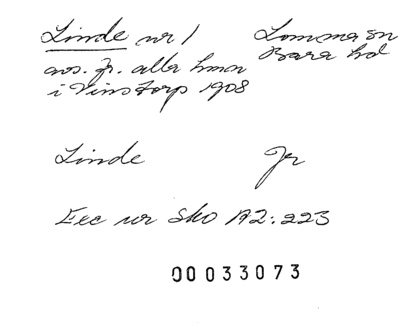 Linde nr 1 Lomma sn
Bara hd
avs. fr. alla hmn
i Vinstorp 1908
Linde Jr
Exc ur Sko A2:223
00033073